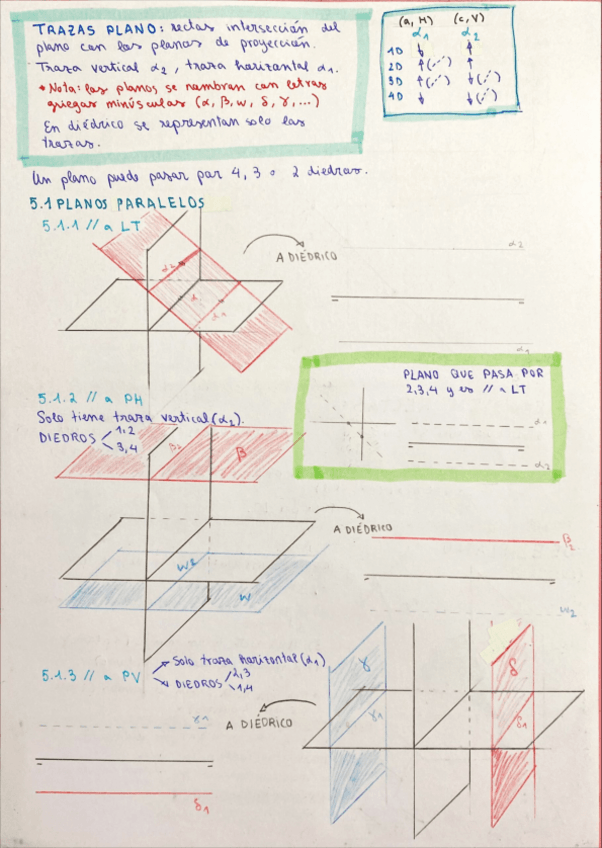 TRAZAS PLANO: rectas intersección del
plano con los planos de proyección.
Traza vertical α2, traza horizontal α1.
* Nota: los planos se nombran con letras
griegas minúsculas (α, β, w, δ, γ,...)
En diédrico se representan solo las
trazas.
(a, H) (c, V)
α1 α2
1D ↓ ↑
2D ↑(⋰) ↑
3D ↑(⋰) ↓(⋰)
4D ↓ ↓(⋰)
Un plano puede pasar por 4, 3 o 2 diedros.
5.1 PLANOS PARALELOS
5.1.1 // a LT
α2
α
α1
A DIÉDRICO
α2
α1
PLANO QUE PASA POR
2,3,4 y es // a LT
α1
α2
5.1.2 // a PH
Solo tiene traza vertical (α2).
DIEDROS 1,2
3,4
β2
β
w2
w
A DIÉDRICO
β2
w2
5.1.3 // a PV
Solo traza horizontal (α1)
DIEDROS 2,3
1,4
A DIÉDRICO
γ1
δ1
γ
γ1
δ
δ1